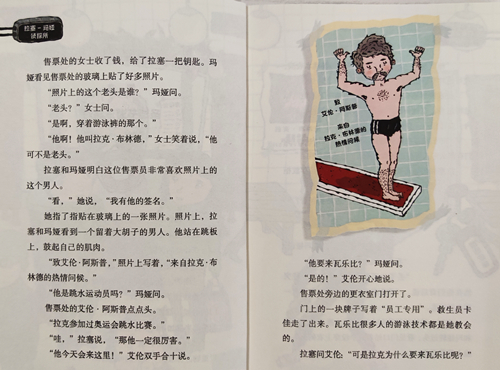 拉塞-玛娅
侦探所
售票处的女士收了钱，给了拉塞一把钥匙。玛
娅看见售票处的玻璃上贴了好多照片。
“照片上的这个老头是谁？”玛娅问。
“老头？”女士问。
“是啊，穿着游泳裤的那个。”
“他啊！他叫拉克·布林德，”女士笑着说，“他
可不是老头。”
拉塞和玛娅明白这位售票员非常喜欢照片上的
这个男人。
“看，”她说，“我有他的签名。”
她指了指贴在玻璃上的一张照片。照片上，拉
塞和玛娅看到一个留着大胡子的男人。他站在跳板
上，鼓起自己的肌肉。
“致艾伦·阿斯普，”照片上写着，“来自拉克·布
林德的热情问候。”
“他是跳水运动员吗？”玛娅问。
售票员的艾伦·阿斯普点点头。
“拉克参加过奥运会跳水比赛。”
“哇，”拉塞说，“那他一定很厉害。”
“他今天会来这里！”艾伦双手合十说。
致
艾伦·阿斯普
来自
拉克·布林德的
热情问候
“他要来瓦乐比？”玛娅问。
“是的！”艾伦开心地说。
售票处旁边的更衣室门打开了。
门上的一块牌子写着“员工专用”。救生员卡
佳走了出来。瓦乐比很多人的游泳技术都是她教会
的。
拉塞问艾伦：“可是拉克为什么要来瓦乐比呢？”